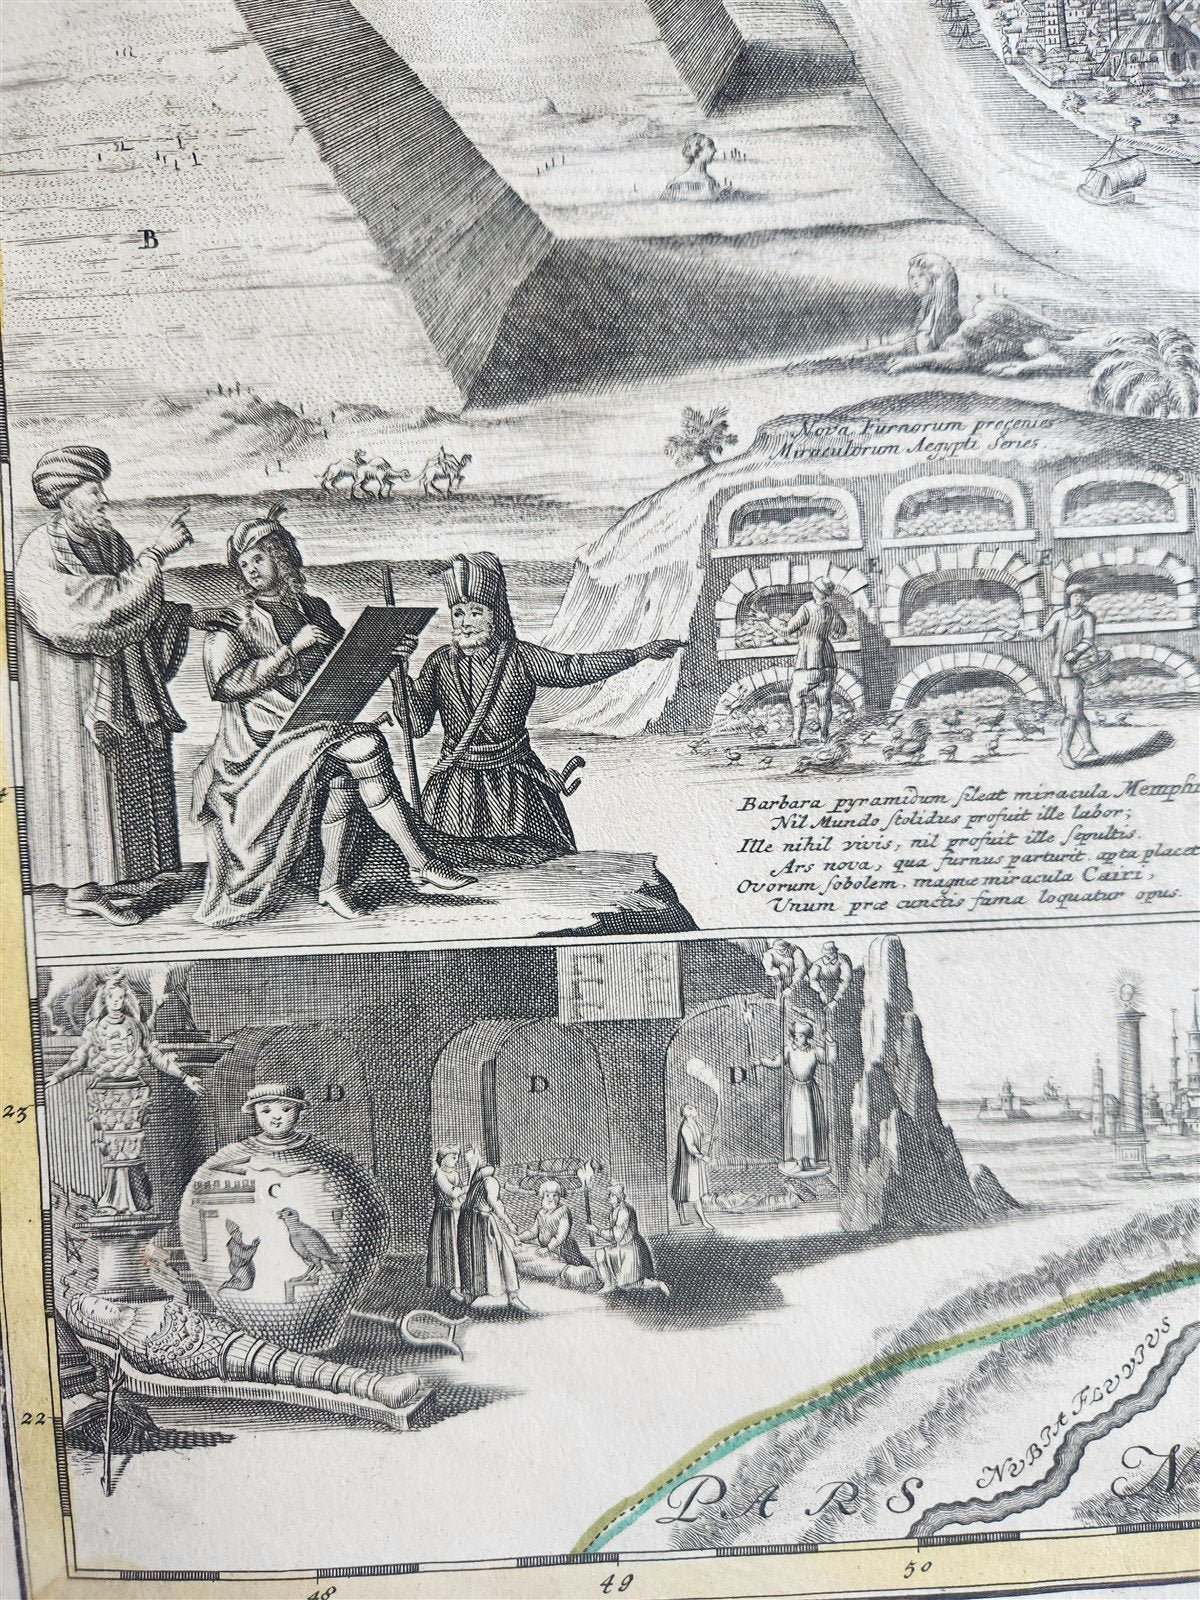 B
Nova Furnorum progenies
Miraculorum Aegypti Series
Barbara pyramidum ſileat miracula Memphi
Nil Mundo ſtolidus profuit ille labor;
Ille nihil vivis, nil profuit ille ſepultis.
Ars nova, qua furnus parturit, apta placet
Ovorum ſobolem, magnæ miracula Cairi,
Unum præ cunctis fama loquatur opus.
D
D
D
C
23
22
NUBIA FLUVIUS
PARS N
48
49
50